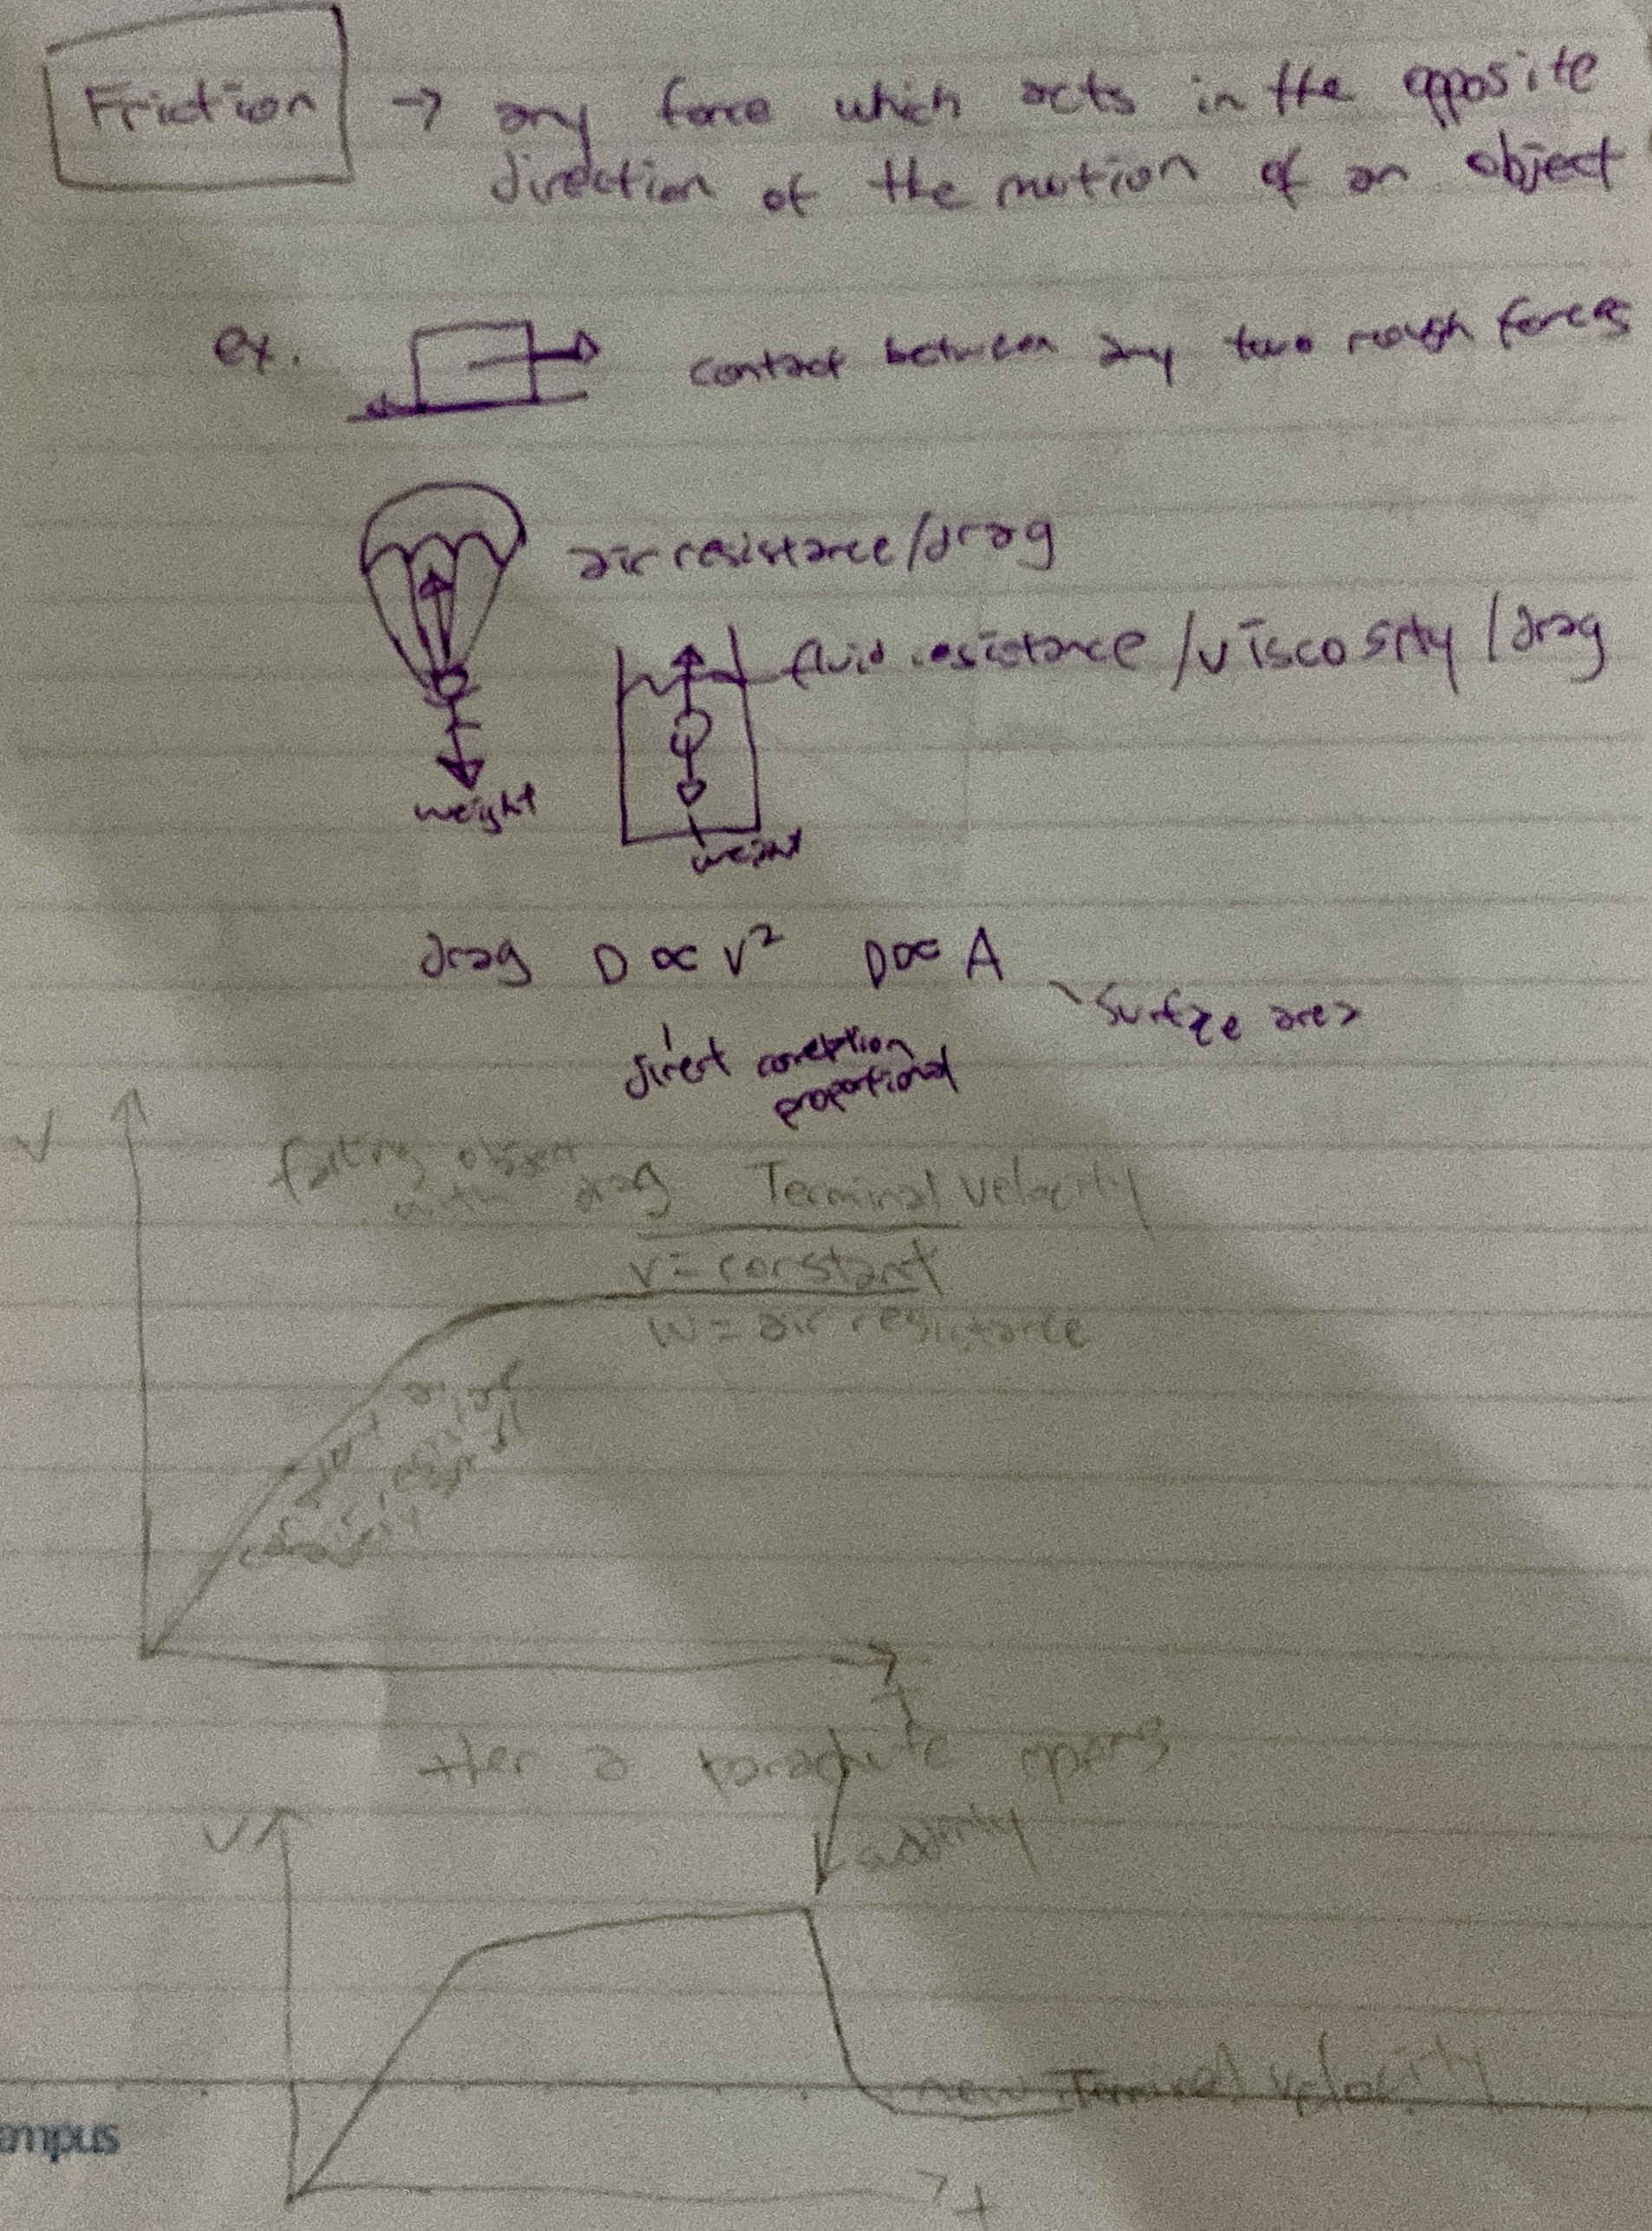 Friction → any force which acts in the opposite
direction of the motion of an object
ex. contact between any two rough forces
air resistance/drag
fluid resistance/viscosity/drag
weight
weight
drag D ∝ v² D ∝ A
surface area
direct correlation
proportional
V
falling object
with drag
Terminal velocity
v = constant
W = air resistance
air
t
after a parachute opens
V
suddenly
new Terminal velocity
t
empus